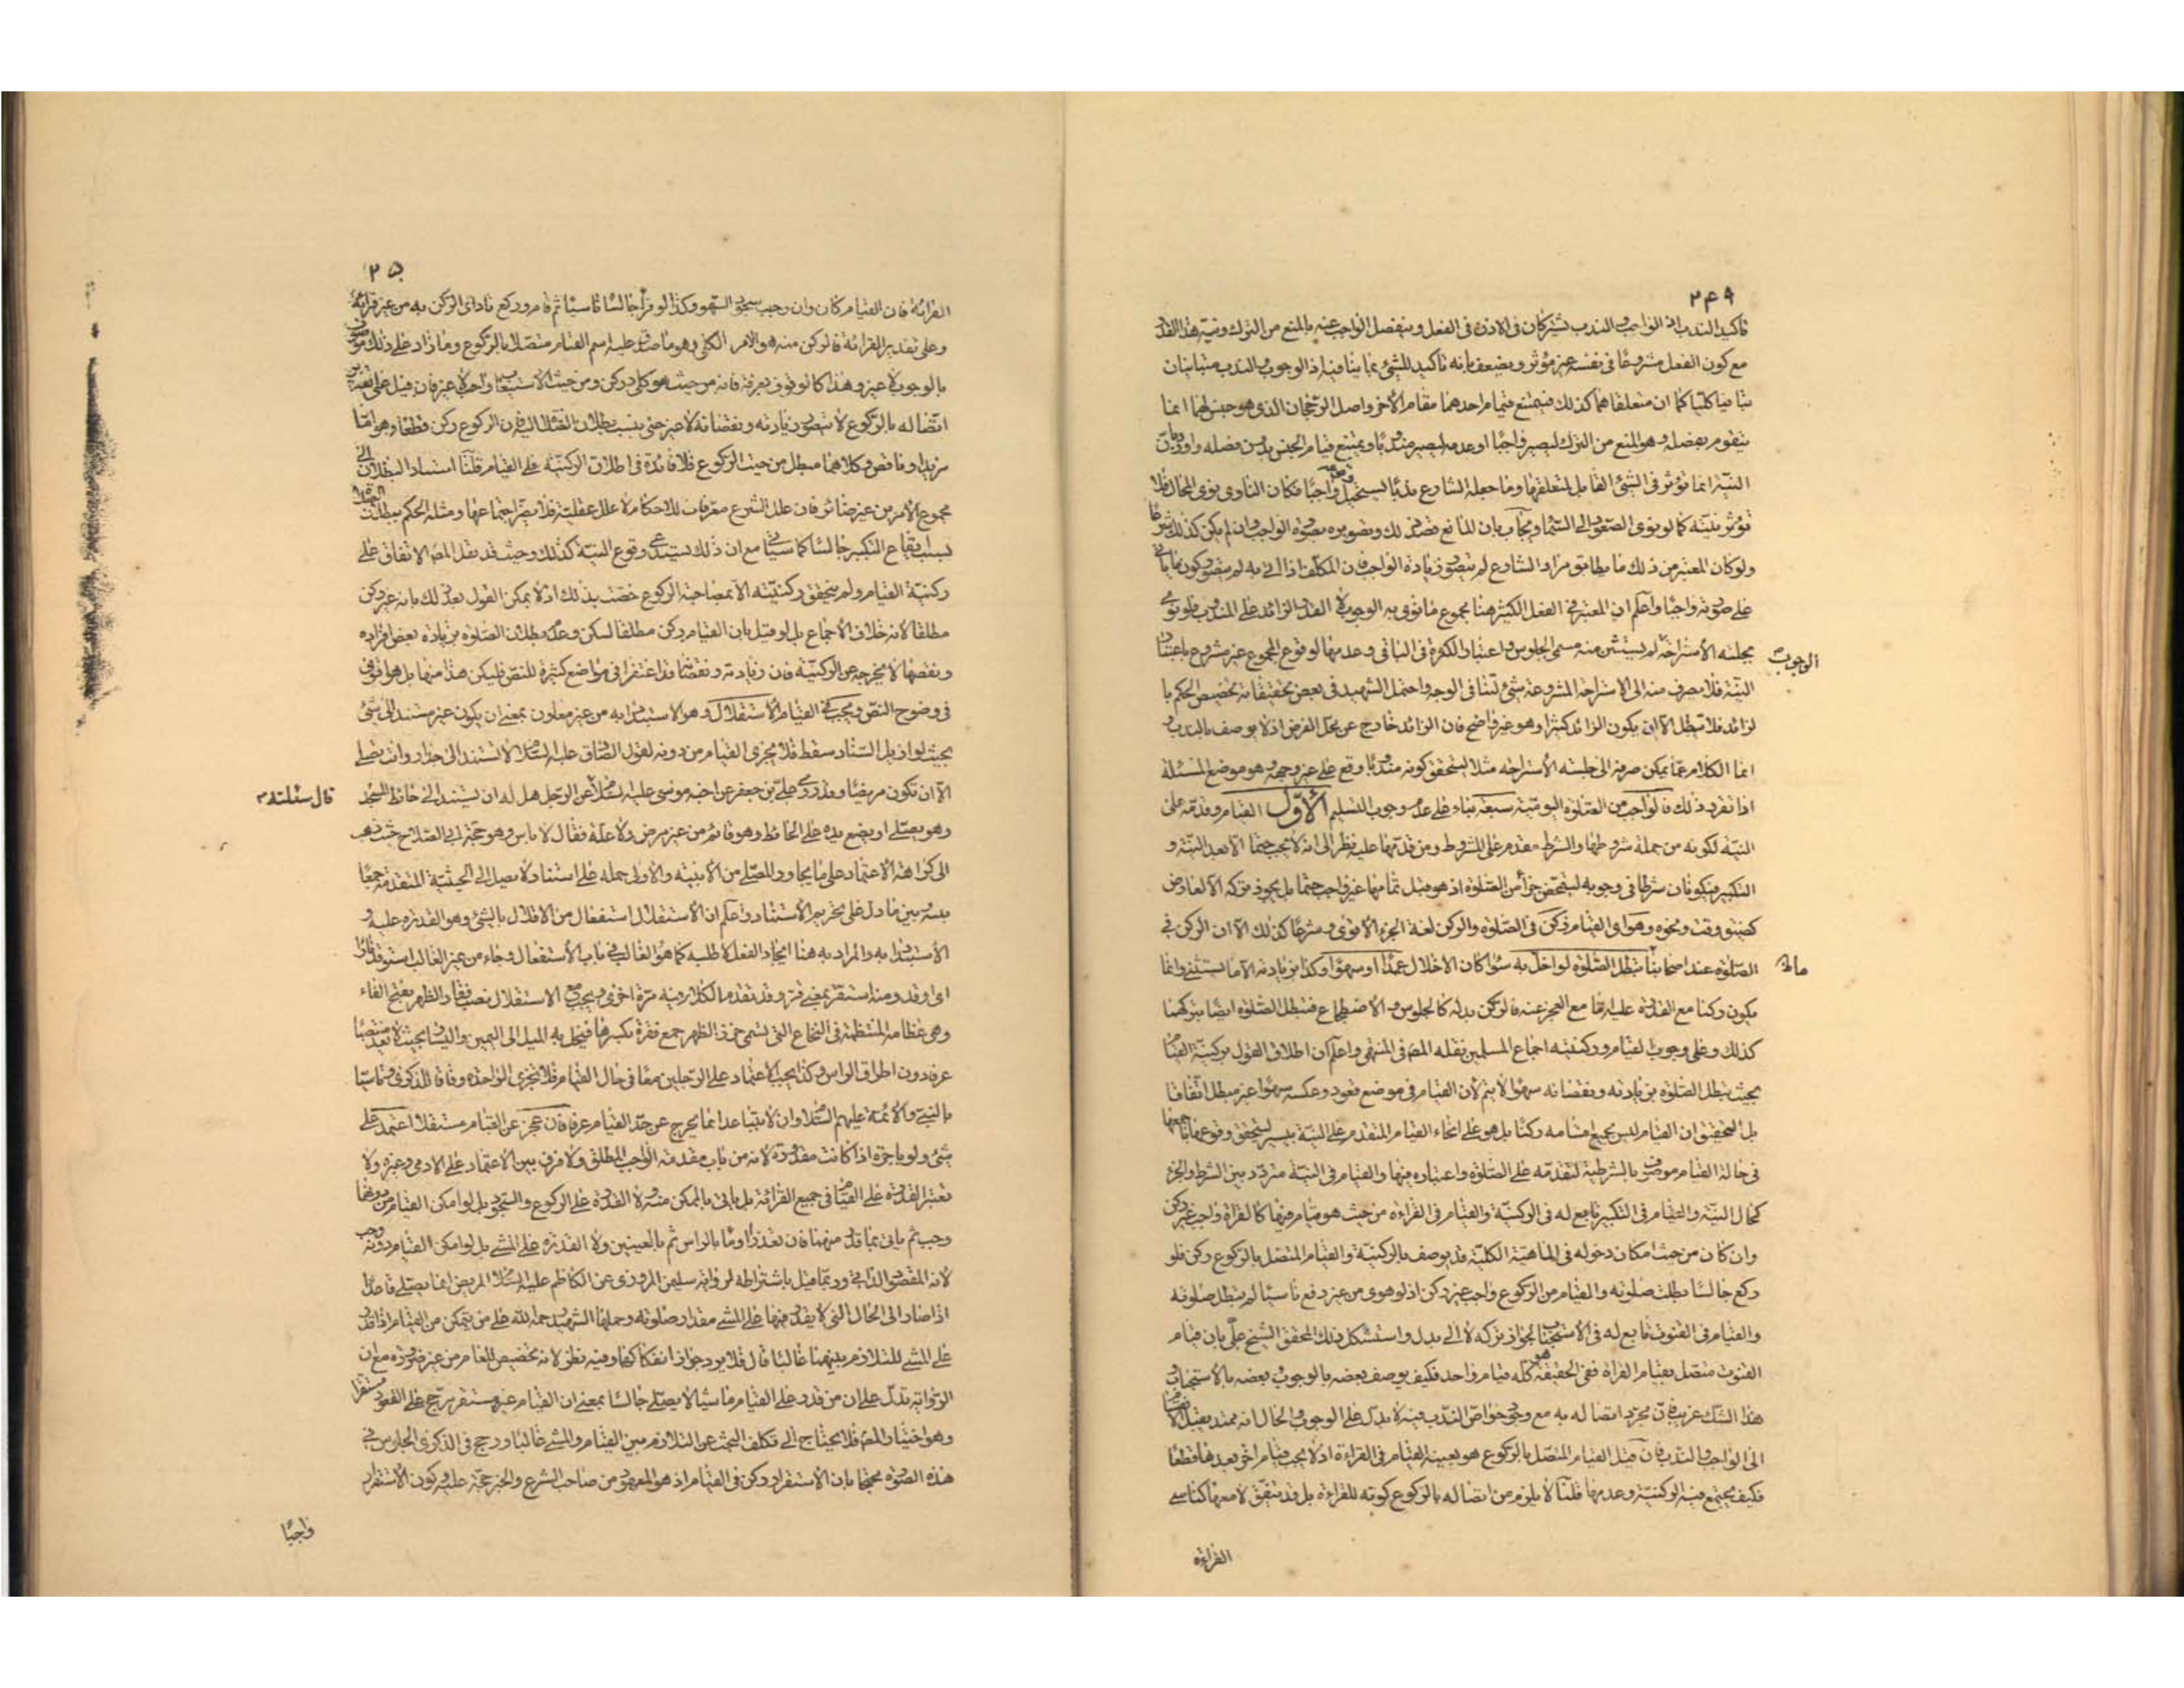 ٢٤٩
تأكيد الندب اذ الواجب والندب يشتركان فى الاذن فى الفعل وينفصل الواجب عنه بالمنع من الترك ونية هذا القدر
مع كون الفعل مشروعا فى نفسه غير مؤثر ويضعف بانه تأكيد للشئ بما ينافيه اذ الوجوب والندب متباينان
تباينا كليا كما ان متعلقاهما كذلك فيمتنع قيام احدهما مقام الاخر واصل الرجحان الذى هو جنس لهما انما
يتقوم بفصله وهو المنع من الترك ليصير واجبا او عدمه ليصير مندوبا ويمتنع قيام الجنس بدون فصله واورد بان
النية انما تؤثر فى الشئ القابل لمتعلقها وما جعله الشارع ندبا يستحيل واجبا فكان الناوى نوى المحال فلا
تؤثر نيته كما لو نوى الصعود الى السماء ويجاب بان المانع قصد ذلك وتصويره بصورة الواجب وان لم يكن كذلك شرعا
ولو كان المعتبر من ذلك ما يطابق مراد الشارع لم يتصور زيادة الواجب فان المكلف اذا اتى به لم يتصور كون ما يأتى
على صورته واجبا واعلم ان المعتبر فى الفعل الكثير هنا مجموع ما نوى به الوجوب لا القدر الزائد على المندوب فلو نوى
الوجوب
بجلسة الاستراحة لم يستثن منه مسمى الجلوس و اعتبار الكثرة فى الباقى وعدمها لوقوع المجموع غير مشروع باعتبار
النية فلا يصرف منه الى الاستراحة المشروعة شئ لتنافى الوجه واحتمل الشهيد فى بعض تحقيقاته تخصيص الحكم با
لزائد فلا تبطل الا ان يكون الزائد كثيرا وهو غير واضح فان الزائد خارج عن محل الفرض اذ لا يوصف بالندب و
انما الكلام عما يمكن صرفه الى جلسة الاستراحة مثلا ليتحقق كونه مندوبا وقع على غير وجهه وهو موضع المسئلة
اذا تقرر ذلك فالواجب من الصلوة اليومية سبعة بناء على عدم وجوب التسليم الاول القيام وقدمه على
النية لكونه من جملة شروطها والشرط مقدم على المشروط ومن قدمها عليه نظر الى انه لا يجب حتما الا بعد النية و
التكبير فيكونان شرطا فى وجوبه ليتمحض جزأ من الصلوة اذ هو قبل تمامها غير واجب حتما بل يجوز تركه الا لعارض
كضيق وقت ونحوه وهو اى القيام ركن فى الصلوة والركن لغة الجزء الاقوى وشرعا كذلك الا ان الركن فى
ما
الصلوة عند اصحابنا تبطل الصلوة لو اخل به سواء كان الاخلال عمدا او سهوا وكذا بزيادته الا ما يستثنى وانما
يكون ركنا مع القدرة عليه اما مع العجز عنه فالركن بدله كالجلوس و الاضطجاع فتبطل الصلوة ايضا بتركهما
كذلك وعلى وجوب القيام وركنيته اجماع المسلمين نقله المصر فى المنتهى واعلم ان اطلاق القول بركنية القيام
بحيث تبطل الصلوة بزيادته ونقصانه سهوا لا يتم لان القيام فى موضع قعود وعكسه سهوا غير مبطل اتفاقا
بل التحقيق ان القيام ليس بجميع اقسامه ركنا بل هو على انحاء القيام المتقدم على النية بيسير ليتحقق وقوعها بتمامها
فى حالة القيام موصوف بالشرطية لتقدمه على الصلوة واعتباره فيها والقيام فى النية متردد بين الشرط والجزء
كحال النية والقيام فى التكبير تابع له فى الركنية والقيام فى القراءة من حيث هو قيام فيها كالقراءة واجب غير ركن
وان كان من حيث امكان دخوله فى الماهية الكلية قد يوصف بالركنية والقيام المتصل بالركوع ركن فلو
ركع جالسا بطلت صلوته والقيام من الركوع واجب غير ركن اذ لو هوى من غير رفع ناسيا لم تبطل صلوته
والقيام فى القنوت تابع له فى الاستحباب لجواز تركه لا الى بدل واستشكل ذلك المحقق الشيخ على بان قيام
القنوت متصل بقيام القراءة ففى الحقيقة هو كله قيام واحد فكيف يوصف بعضه بالوجوب وبعضه بالاستحباب
هذا الشك غريب فان مجرد اتصاله به مع وجود خواص الندب فيه لا يدل على الوجوب والحال انه ممتد يقبل الانقسام
الى الواجب والندب فان قيل القيام المتصل بالركوع هو بعينه القيام فى القراءة اذ لا يجب قيام اخر بعدها قطعا
فكيف يجتمع فيه الركنية وعدمها قلنا لا يلزم من اتصاله بالركوع كونه للقراءة بل قد يتفق لا معها كناسى
القراءة
٢٥
القرائة فان القيام كان وان وجب سجود السهو وكذا لو قرأ جالسا ناسيا ثم قام وركع فاداى الركن به من غير قرائة
وعلى تقدير القرائة فالركن منه هو الامر الكلى وهو ما صدق عليه اسم القيام متصلا بالركوع وما زاد على ذلك موصوف
بالوجوب لا غير وهذا كالوقوف بعرفة فانه من حيث هو كل ركن ومن حيث الاستيعاب واجب لا غير فان قيل على تقدير
اتصاله بالركوع لا يتصور زيادته ونقصانه لا غير حتى ينسب بطلان الصلوة اليه فان الركوع ركن قطعا وهو اما
مزيد او ناقص وكلاهما مبطل من حيث الركوع فلا فائدة فى اطلاق الركنية على القيام قلنا استناد البطلان الى
مجموع الامرين غير ضائر فان علل الشرع معرفات للاحكام لا علل عقلية فلا يضر اجتماعها ومثله الحكم ببطلان الصلوة
بسبب ايقاع التكبير جالسا كما سيأتى مع ان ذلك يستدعى وقوع النية كذلك وحيث قد نقل المصر الاتفاق على
ركنية القيام ولم يتحقق ركنيته الا بمصاحبة الركوع خصت بذلك اذ لا يمكن القول بعد ذلك بانه غير ركن
مطلقا لانه خلاف الاجماع بل لو قيل بان القيام ركن مطلقا لسكن وعدم بطلان الصلوة بزيادة بعض افراده
ونقصها لا يخرجه عن الركنية فان زيادته ونقصانه قد اغتفرا فى مواضع كثيرة للنص فليكن هذا منها بل هو اقوى
فى وضوح النص ويجب فى القيام الاستقلال وهو الاستبداد به من غير معاون بمعنى ان يكون غير مستند الى شئ
بحيث لو ازيل السناد سقط فلا يجزى القيام من دونه لقول الصادق عليه السلام لا تستند الى جدار وانت تصلى
الا ان تكون مريضا وقد روى على بن جعفر عن اخيه موسى عليه السلام قال سئلته عن الرجل هل له ان يستند الى حائط المسجد
وهو يصلى او يضع يده على الحائط وهو قائم من غير مرض ولا علة فقال لا باس وهو حجة ابى الصلاح حيث ذهب
الى كراهة الاعتماد على ما يجاور المصلى من الابنية والاولى حمله على استناد لا يصل الى الحيثية المتقدمة جمعا
بينه وبين ما دل على تحريم الاستناد واعلم ان الاستقلال استفعال من الاقلال بالشئ وهو القدرة عليه و
الاستبداد به والمراد به هنا ايجاد الفعل لا طلبه كما هو الغالب فى باب الاستفعال وجاء من غير الغالب استوقد نارا
اى اوقد ومنه استقر بمعنى قر وقد تقدم الكلام فيه مرة اخرى ويجب مع الاستقلال نصب فقار الظهر بفتح الفاء
وهى عظامه المنتظمة فى النخاع التى تسمى خرز الظهر جمع فقرة بكسرها فيخل به الميل الى اليمين واليسار بحيث لا يعد منتصبا
عرفا دون اطراق الراس وكذا يجب الاعتماد على الرجلين معا فى حال القيام فلا تجزى الواحدة وفاقا للذكرى تاسيا
بالنبى والائمة عليهم السلام وان لا يتباعدا بما يخرج عن حد القيام عرفا فان عجز عن القيام مستقلا اعتمد على
شئ ولو باجرة اذا كانت مقدورة لانه من باب مقدمة الواجب المطلق ولا فرق بين الاعتماد على الادمى وغيره ولا
تعتبر القدرة على القيام فى جميع القرائة بل ياتى بالممكن منه ولا القدرة على الركوع والسجود بل لو امكن القيام من دونهما
وجب ثم ياتى بما قدر منهما فان تعذرا اومأ بالراس ثم بالعينين ولا القدرة على المشى بل لو امكن القيام بدونه وجب
لانه المقصود الذاتى وربما قيل باشتراطه لرواية سليمن المروزى عن الكاظم عليه السلام المريض انما يصلى قاعدا
اذا صار الى الحال التى لا يقدر فيها على المشى مقدار صلوته وحملها الشهيد رحمه الله على من يتمكن من القيام اذا قدر
على المشى للتلازم بينهما غالبا قال فلا يرد جواز انفكاكهما وفيه نظر لانه تخصيص للعام من غير ضرورة مع ان
الرواية تدل على ان من قدر على القيام ماشيا لا يصلى جالسا بمعنى ان القيام غير مستقر يرجح على القعود مستقرا
وهو اختيار المصر فلا يحتاج الى تكلف البحث عن التلازم بين القيام والمشى غالبا ورجح فى الذكرى الجلوس فى
هذه الصورة محتجا بان الاستقرار ركن فى القيام اذ هو المعهود من صاحب الشرع والخبر حجة عليه وكون الاستقرار
واجبا